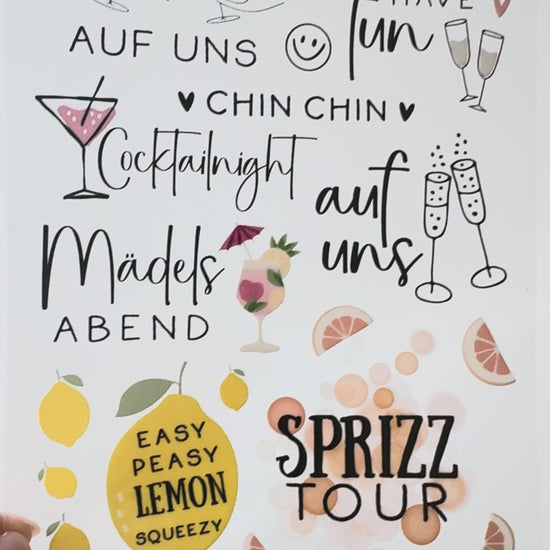 HAVE
fun
AUF UNS
CHIN CHIN
Cocktailnight
auf
uns
Mädels
ABEND
EASY
PEASY
LEMON
SQUEEZY
SPRIZZ
TOUR